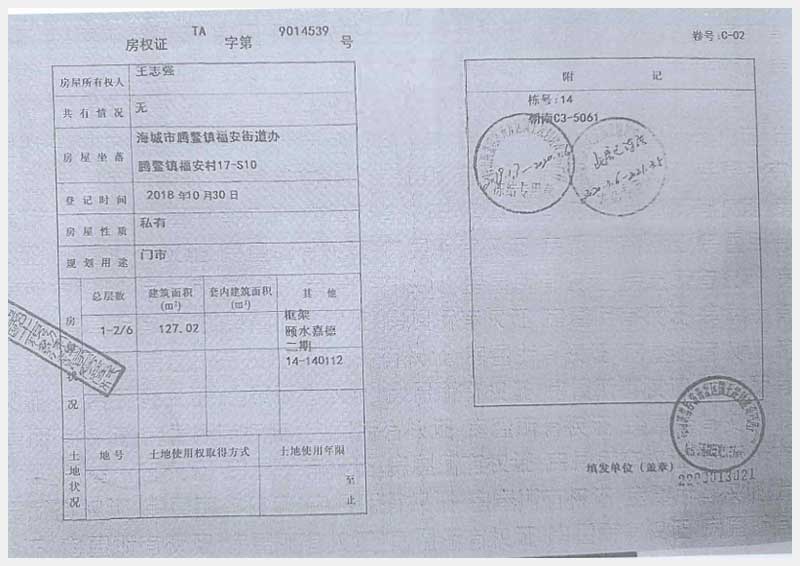 TA 9014539
房权证 字第 号
房屋所有权人 王志强
共有情况 无
房屋坐落 海城市腾鳌镇福安街道办
腾鳌镇福安村17-S10
登记时间 2018年10月30日
房屋性质 私有
规划用途 门市
房 状况
总层数 建筑面积(m²) 套内建筑面积(m²) 其他
1-2/6 127.02 框架
颐水嘉德
二期
14-140112
土地状况
地号 土地使用权取得方式 土地使用年限
至
止
卷号:C-02
附 记
栋号:14
C3-5061
冻结专用章
填发单位(盖章)